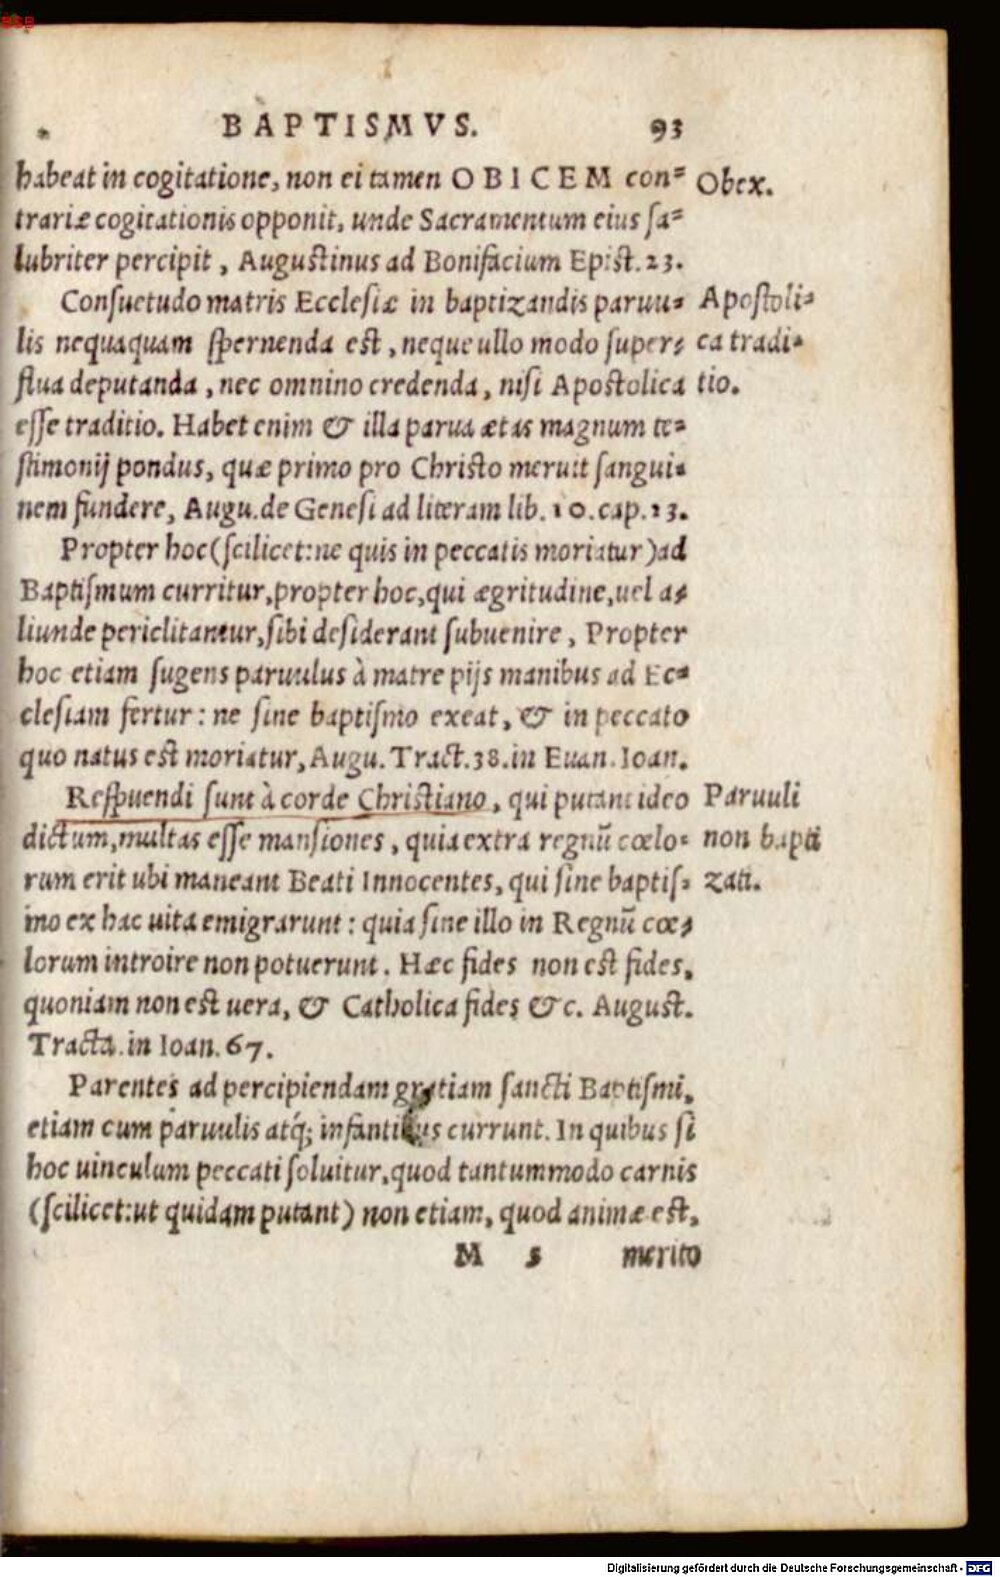 BSB
BAPTISMVS. 93
habeat in cogitatione, non ei tamen OBICEM con=
Obex.
trariæ cogitationis opponit, unde Sacramentum eius ſa=
lubriter percipit, Auguſtinus ad Bonifacium Epiſt. 23.
Conſuetudo matris Eccleſiæ in baptizandis paruu=
Apoſtoli=
lis nequaquam ſpernenda eſt, neque ullo modo ſuper=
ca tradi=
flua deputanda, nec omnino credenda, niſi Apoſtolica
tio.
eſſe traditio. Habet enim & illa parua ætas magnum te=
ſtimonij pondus, quæ primo pro Chriſto meruit ſangui=
nem fundere, Augu. de Geneſi ad literam lib. 10. cap. 23.
Propter hoc (ſcilicet: ne quis in peccatis moriatur) ad
Baptiſmum curritur, propter hoc, qui ægritudine, uel a=
liunde periclitantur, ſibi deſiderant ſubuenire, Propter
hoc etiam ſugens paruulus à matre pijs manibus ad Ec=
cleſiam fertur: ne ſine baptiſmo exeat, & in peccato
quo natus eſt moriatur, Augu. Tract. 38. in Euan. Ioan.
Reſpuendi ſunt à corde Chriſtiano, qui putant ideo
Paruuli
dictum, multas eſſe manſiones, quia extra regnū cœlo=
non bapti
rum erit ubi maneant Beati Innocentes, qui ſine baptiſ=
zati.
mo ex hac uita emigrarunt: quia ſine illo in Regnū cœ=
lorum introire non potuerunt. Hæc fides non eſt fides,
quoniam non eſt uera, & Catholica fides &c. Auguſt.
Tracta. in Ioan. 67.
Parentes ad percipiendam gratiam ſancti Baptiſmi,
etiam cum paruulis atq́; infantibus currunt. In quibus ſi
hoc uinculum peccati ſoluitur, quod tantummodo carnis
(ſcilicet: ut quidam putant) non etiam, quod animæ eſt,
M 5 merito
Digitalisierung gefördert durch die Deutsche Forschungsgemeinschaft - DFG